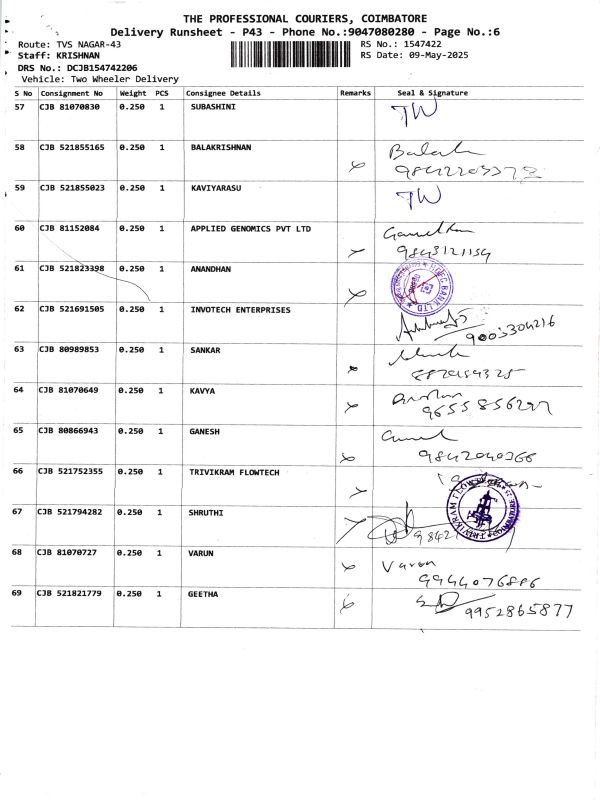 THE PROFESSIONAL COURIERS, COIMBATORE
Delivery Runsheet - P43 - Phone No.:9047080280 - Page No.:6
Route: TVS NAGAR-43 RS No.: 1547422
Staff: KRISHNAN RS Date: 09-May-2025
DRS No.: DCJB154742206
Vehicle: Two Wheeler Delivery
S No Consignment No Weight PCS Consignee Details Remarks Seal & Signature
57 CJB 81070830 0.250 1 SUBASHINI TW
58 CJB 521855165 0.250 1 BALAKRISHNAN
59 CJB 521855023 0.250 1 KAVIYARASU TW
60 CJB 81152084 0.250 1 APPLIED GENOMICS PVT LTD
9843121154
61 CJB 521823398 0.250 1 ANANDHAN
62 CJB 521691505 0.250 1 INVOTECH ENTERPRISES
9003304216
63 CJB 80989853 0.250 1 SANKAR
64 CJB 81070649 0.250 1 KAVYA
65 CJB 80866943 0.250 1 GANESH
9842040366
66 CJB 521752355 0.250 1 TRIVIKRAM FLOWTECH
67 CJB 521794282 0.250 1 SHRUTHI
68 CJB 81070727 0.250 1 VARUN Varun
9944076886
69 CJB 521821779 0.250 1 GEETHA
9952865877